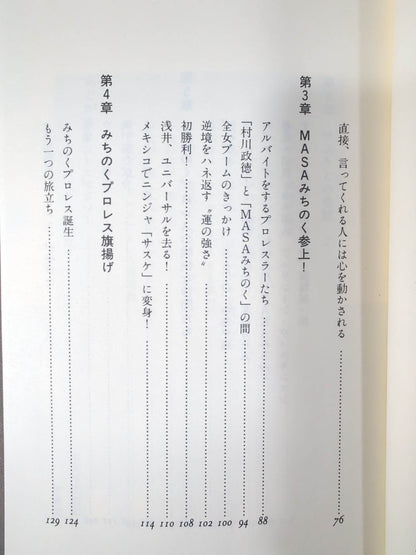 直接、言ってくれる人には心を動かされる……76
第3章　MASAみちのく参上！
アルバイトをするプロレスラーたち……88
「村川政徳」と「MASAみちのく」の間……94
全女ブームのきっかけ……100
逆境をハネ返す〝運の強さ〟……102
初勝利！……108
浅井、ユニバーサルを去る！……110
メキシコでニンジャ「サスケ」に変身！……114
第4章　みちのくプロレス旗揚げ
みちのくプロレス誕生……124
もう一つの旅立ち……129